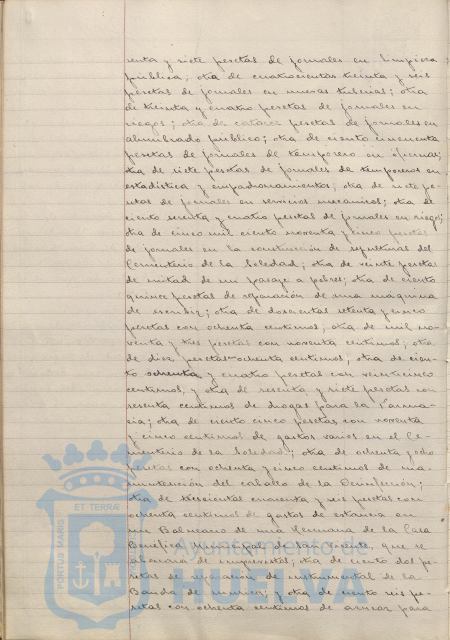 renta y siete pesetas de jornales en limpieza
pública; otra de cuatrocientas treinta y seis
pesetas de jornales en nuevas tuberías; otra
de treinta y cuatro pesetas de jornales en
riegos; otra de catorce pesetas de jornales en
alumbrado público; otra de ciento cincuenta
pesetas de jornales de temporero en
otra de siete pesetas de jornales de temporeros en
estadística y empadronamientos; otra de siete pe-
setas de jornales en servicios mecánicos; otra de
ciento sesenta y cuatro pesetas de jornales en riegos;
otra de cinco mil ciento noventa y cinco pesetas
de jornales en la construcción de sepulturas del
Cementerio de la Soledad; otra de veinte pesetas
de mitad de un pasaje a pobres; otra de ciento
quince pesetas de reparación de una máquina
de escribir; otra de doscientas setenta y cinco
pesetas con ochenta céntimos; otra de mil no-
venta y tres pesetas con noventa céntimos; otra
de diez pesetas ochenta céntimos; otra de cien-
to ochenta y cuatro pesetas con veinticinco
céntimos, y otra de sesenta y siete pesetas con
sesenta céntimos de drogas para la Farma-
cia; otra de ciento cinco pesetas con noventa
y cinco céntimos de gastos varios en el Ce-
menterio de la Soledad; otra de ochenta y ocho
pesetas con ochenta y cinco céntimos de ma-
nutención del caballo de la Desinfección;
otra de trescientas cincuenta y seis pesetas con
ochenta céntimos de gastos de estancia en
un Balneario de una Hermana de la Casa
Benéfica Municipal de San Vicente, que se
abonará de imprevistos; otra de ciento dos pe-
setas de reparación de instrumental de la
Banda de música; y otra de ciento seis pe-
setas con ochenta céntimos de arroz para
ET TERRÆ
PORTUS MARIS
CUSTODIA
Ayuntamiento de
HUELVA